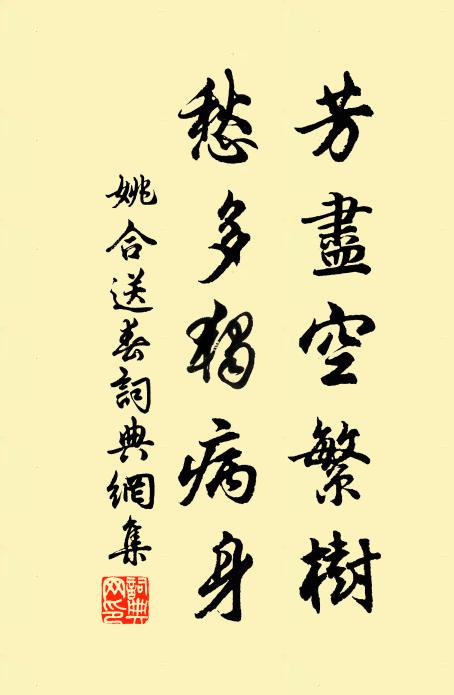 芳盡空繁樹
愁多獨病身
姚合送春詞典網集
詞典網印